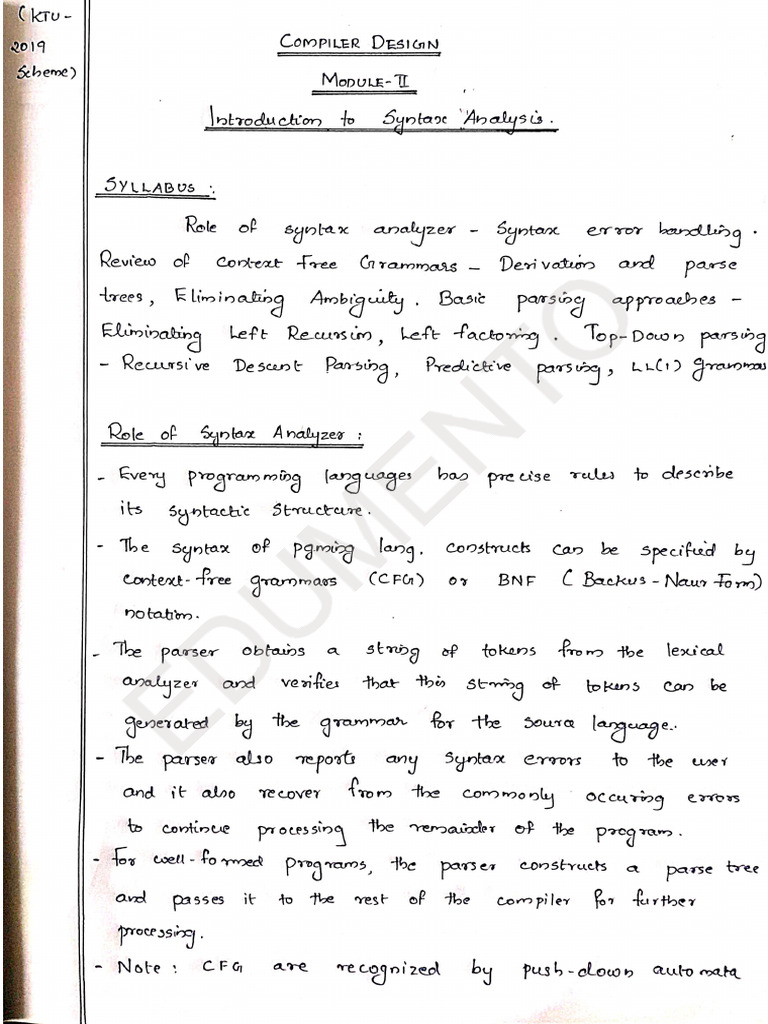 (KTU-
2019
Scheme)
COMPILER DESIGN
MODULE-II
Introduction to Syntax Analysis.
SYLLABUS:
Role of syntax analyzer - Syntax error handling.
Review of Context Free Grammars - Derivation and parse
trees, Eliminating Ambiguity. Basic parsing approaches -
Eliminating Left Recursion, Left factoring. Top-Down parsing
- Recursive Descent Parsing, Predictive parsing, LL(1) Grammars
Role of Syntax Analyzer:
- Every programming languages has precise rules to describe
its syntactic structure.
- The syntax of pgming lang. constructs can be specified by
context-free grammars (CFG) or BNF (Backus-Naur Form)
notation.
- The parser obtains a string of tokens from the lexical
analyzer and verifies that this string of tokens can be
generated by the grammar for the source language.
- The parser also reports any syntax errors to the user
and it also recover from the commonly occuring errors
to continue processing the remainder of the program.
- For well-formed programs, the parser constructs a parse tree
and passes it to the rest of the compiler for further
processing.
- Note: CFG are recognized by push-down automata
EDUMENTO